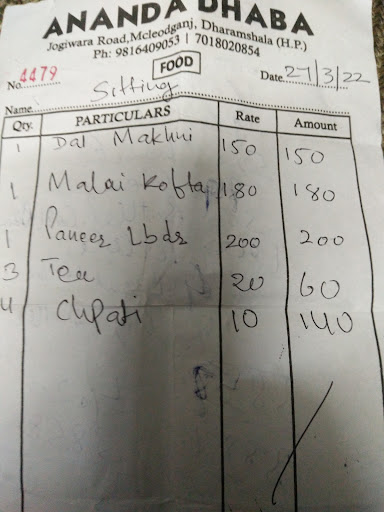 ANANDA DHABA
Jogiwara Road, Mcleodganj, Dharamshala (H.P.)
Ph: 9816409053 | 7018020854
FOOD
No. 4479 Date 27/3/22
Name Sitting
Qty. PARTICULARS Rate Amount
1 Dal Makhni 150 150
1 Malai Kofta 180 180
1 Paneer Lbdr 200 200
3 Tea 20 60
4 Chpati 10 140